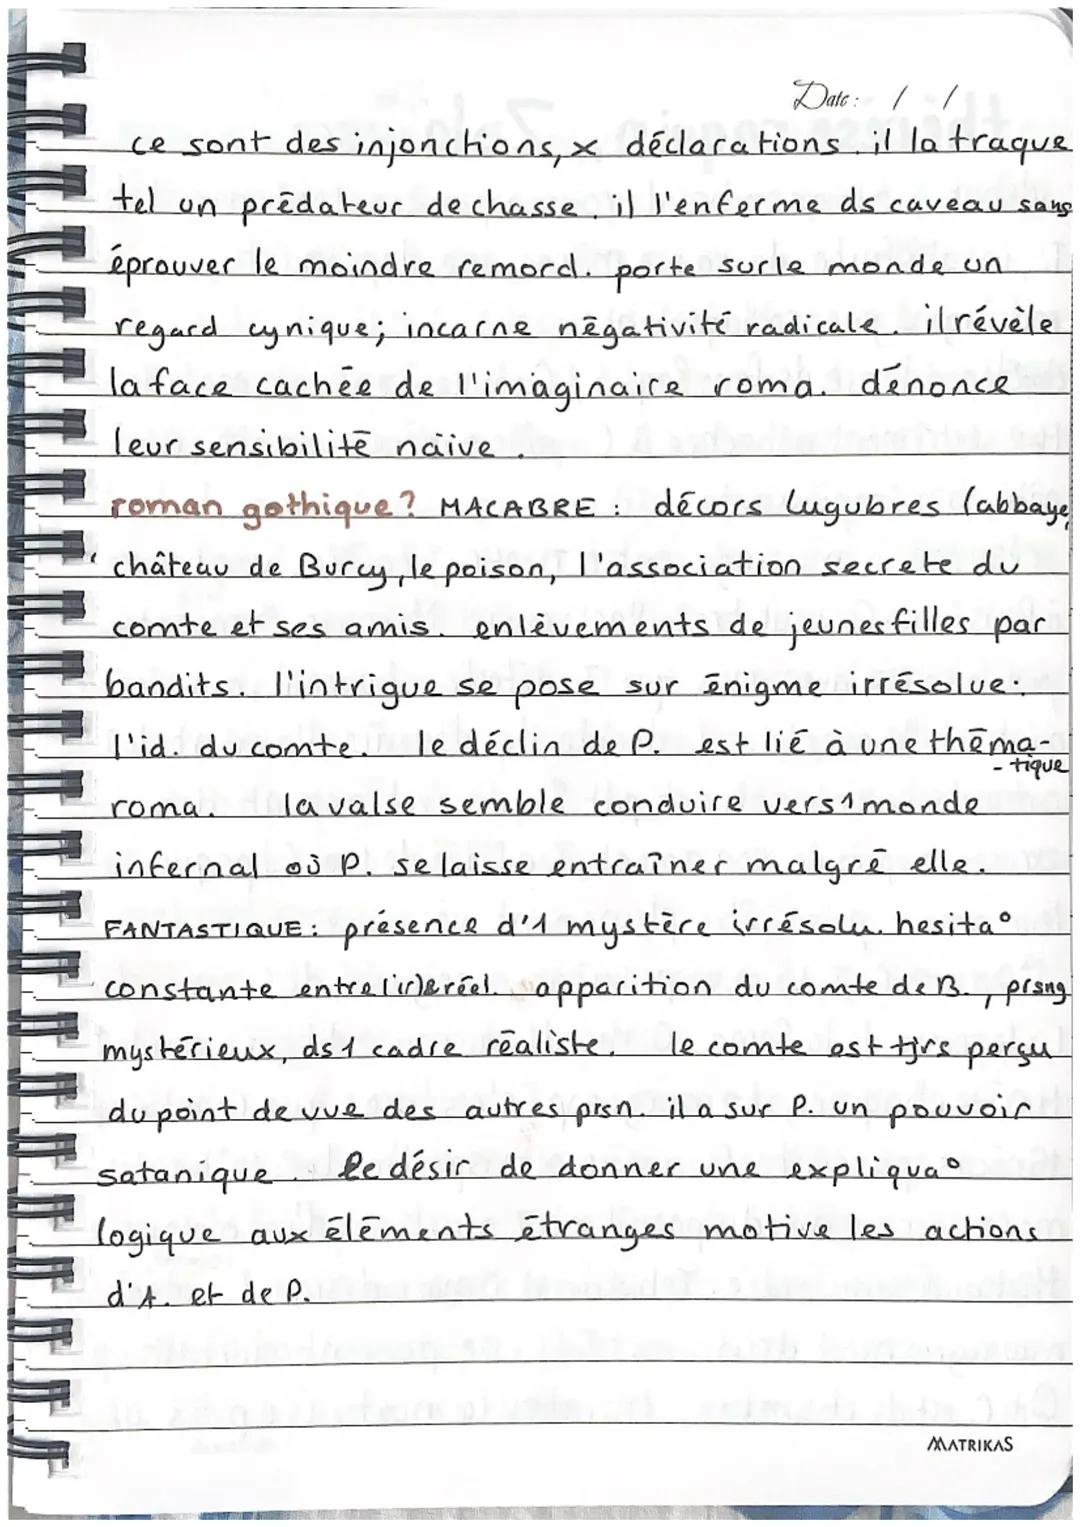 Date: / /
ce sont des injonctions, x déclarations. il la traque
tel un prédateur de chasse. il l'enferme ds caveau sans
éprouver le moindre remord. porte sur le monde un
regard cynique; incarne négativité radicale. il révèle
la face cachée de l'imaginaire roma. dénonce
leur sensibilité naïve.
roman gothique? MACABRE : décors lugubres (abbaye,
château de Burcy, le poison, l'association secrete du
comte et ses amis. enlèvements de jeunes filles par
bandits. l'intrigue se pose sur énigme irrésolue:
l'id. du comte. le déclin de P. est lié à une théma-
-tique
roma. la valse semble conduire vers 1 monde
infernal où P. se laisse entraîner malgré elle.
FANTASTIQUE: présence d'1 mystère irrésolu. hesita°
constante entre (ir)&réel. apparition du comte de B., prsng
mystérieux, ds 1 cadre réaliste. le comte est tjrs perçu
du point de vue des autres prsn. il a sur P. un pouvoir
satanique. le désir de donner une expliqua°
logique aux éléments étranges motive les actions
d'A. et de P.
MATRIKAS